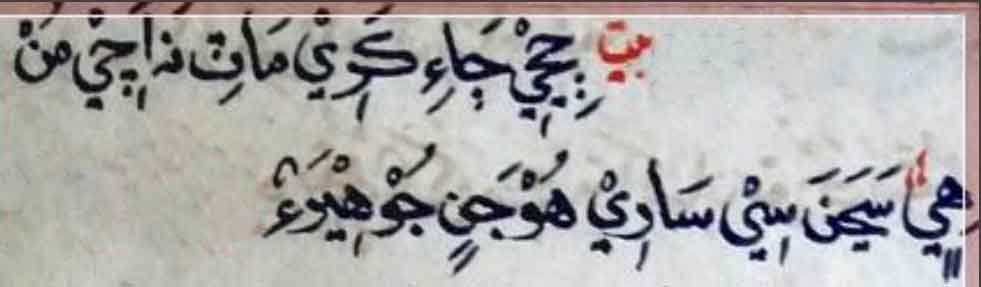 بيت جِجِيْ جَاءِ كَرِيْ مَاتِ نَہ اَچِيْ مَنْ
هِيٍ سَڄَنَ سِيْ سَارِيْ هُوْ جَنٍ جُوْ هِيْرَءْ